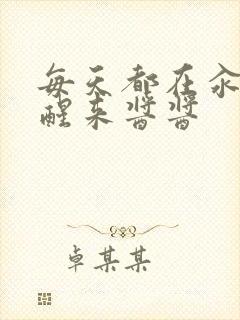 每天都在汆
醒来酱酱
卓某某